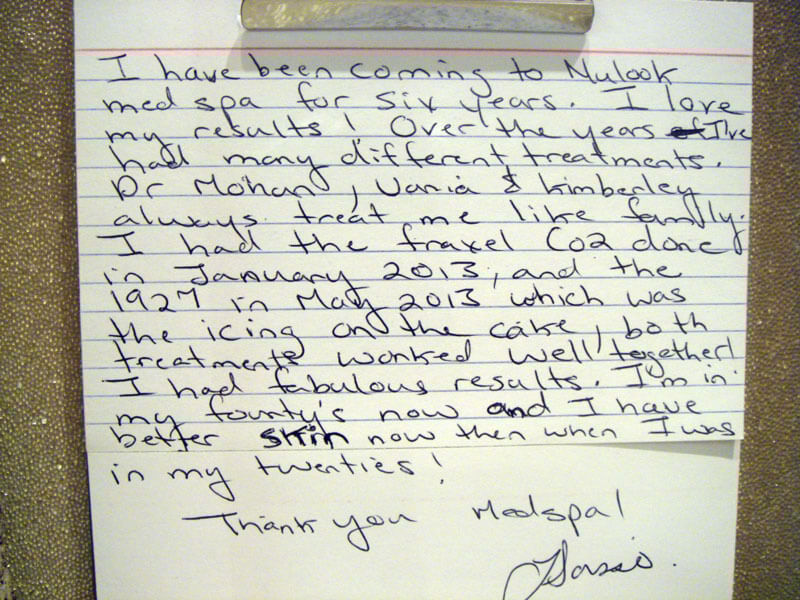 I have been coming to Nulook
med spa for six years. I love
my results! Over the years I've
had many different treatments.
Dr Mohan, Vania & Kimberley
always treat me like family.
I had the fraxel Co2 done
in January 2013, and the
1927 in May 2013 which was
the icing on the cake, both
treatments worked well together!
I had fabulous results. I'm in
my fourty's now and I have
better skin now then when I was
in my twenties!
Thank you Medspa!